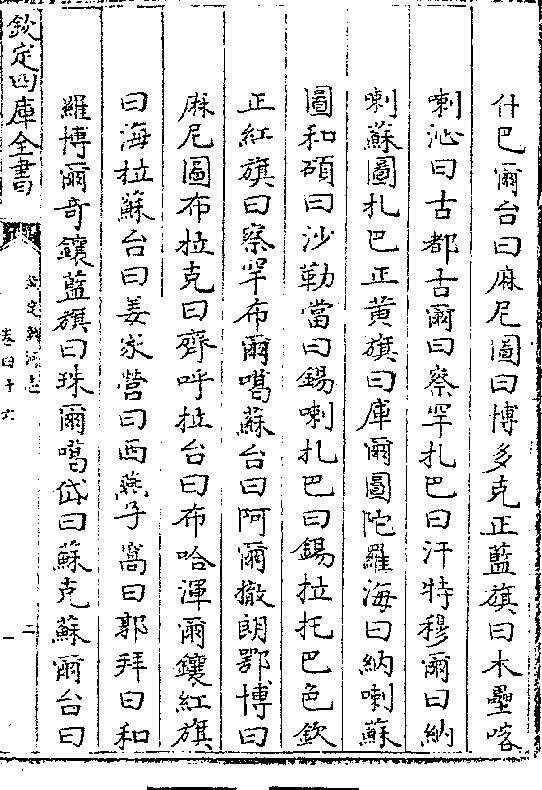 什巴爾台曰麻尼圖曰博多克正藍旗曰木壘喀
喇沁曰古都古爾曰察罕扎巴曰汗特穆爾曰納
喇蘇圖扎巴正黃旗曰庫爾圖陀羅海曰納喇蘇
圖和碩曰沙勒當曰錫喇扎巴曰錫拉托巴色欽
正紅旗曰察罕布爾噶蘇台曰阿爾撒朗鄂博曰
麻尼圖布拉克曰齊呼拉台曰布哈渾爾鑲紅旗
曰海拉蘇台曰姜家營曰西燕子窩曰郭拜曰和
羅博爾奇鑲藍旗曰珠爾噶岱曰蘇克蘇爾台曰
欽定四庫全書
欽定熱河志
卷四十六
二